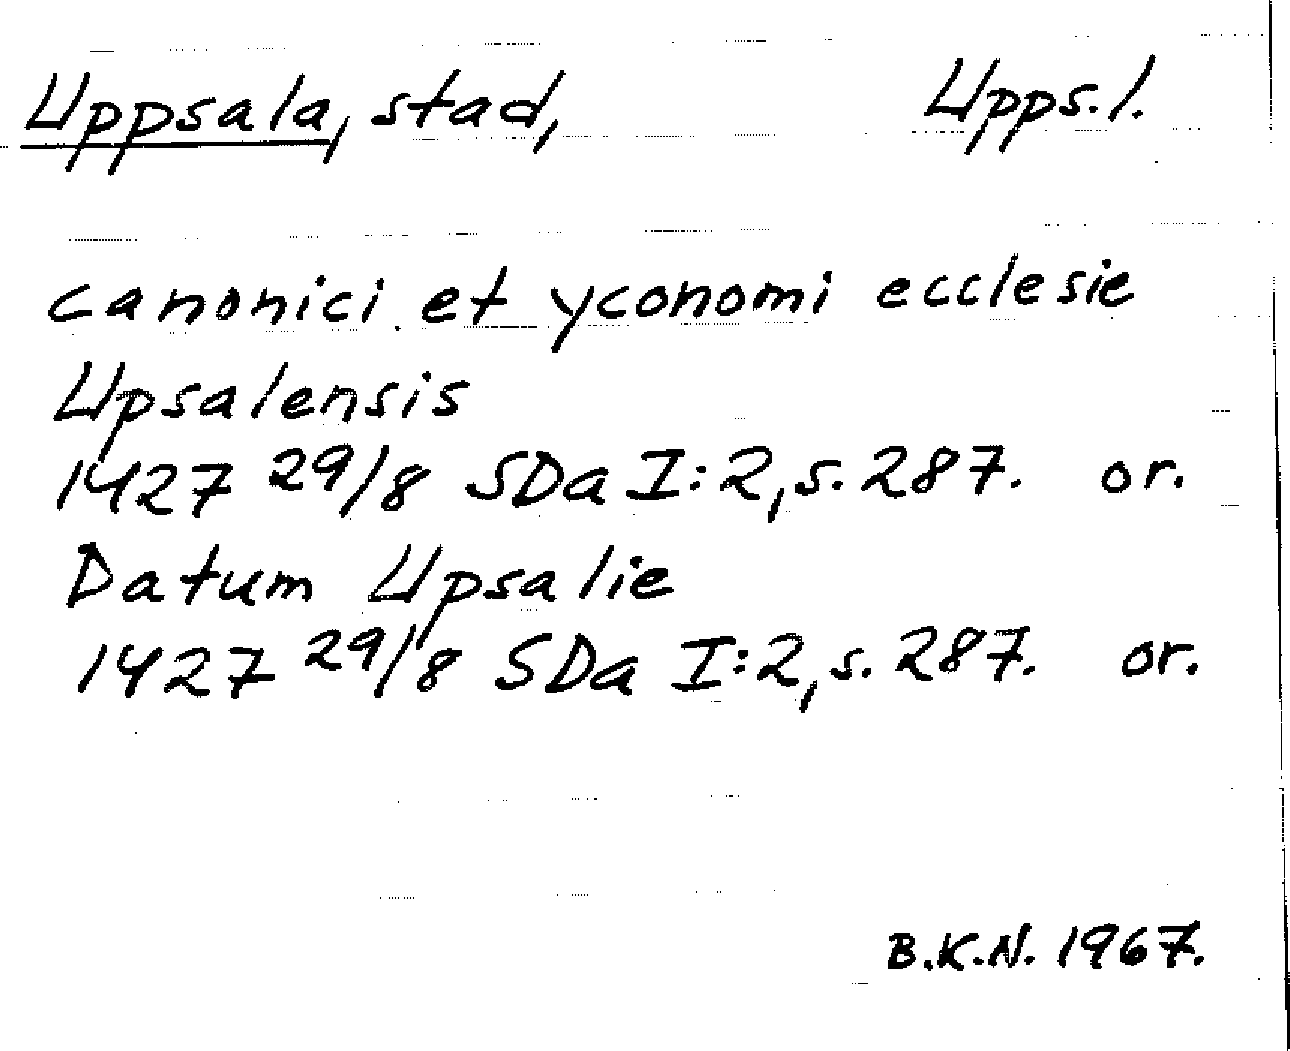 Uppsala, stad, Upps.l.
canonici et yconomi ecclesie
Upsalensis
1427 29/8 SDa I:2, s. 287. or.
Datum Upsalie
1427 29/8 SDa I:2, s. 287. or.
B.K.N. 1967.